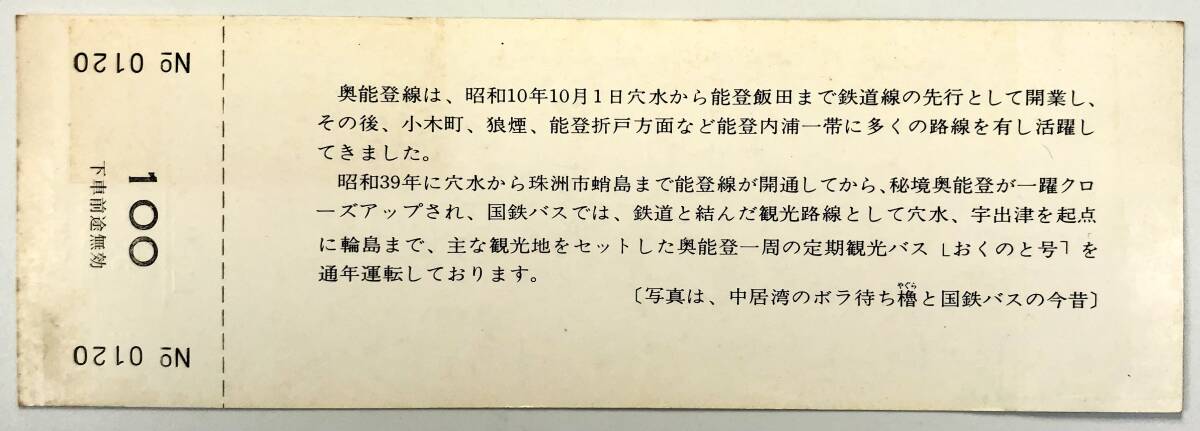 № 0120
100
下車前途無効
№ 0120
奥能登線は、昭和10年10月1日穴水から能登飯田まで鉄道線の先行として開業し、
その後、小木町、狼煙、能登折戸方面など能登内浦一帯に多くの路線を有し活躍し
てきました。
昭和39年に穴水から珠洲市蛸島まで能登線が開通してから、秘境奥能登が一躍クロ
ーズアップされ、国鉄バスでは、鉄道と結んだ観光路線として穴水、宇出津を起点
に輪島まで、主な観光地をセットした奥能登一周の定期観光バス「おくのと号」を
通年運転しております。
やぐら
〔写真は、中居湾のボラ待ち櫓と国鉄バスの今昔〕